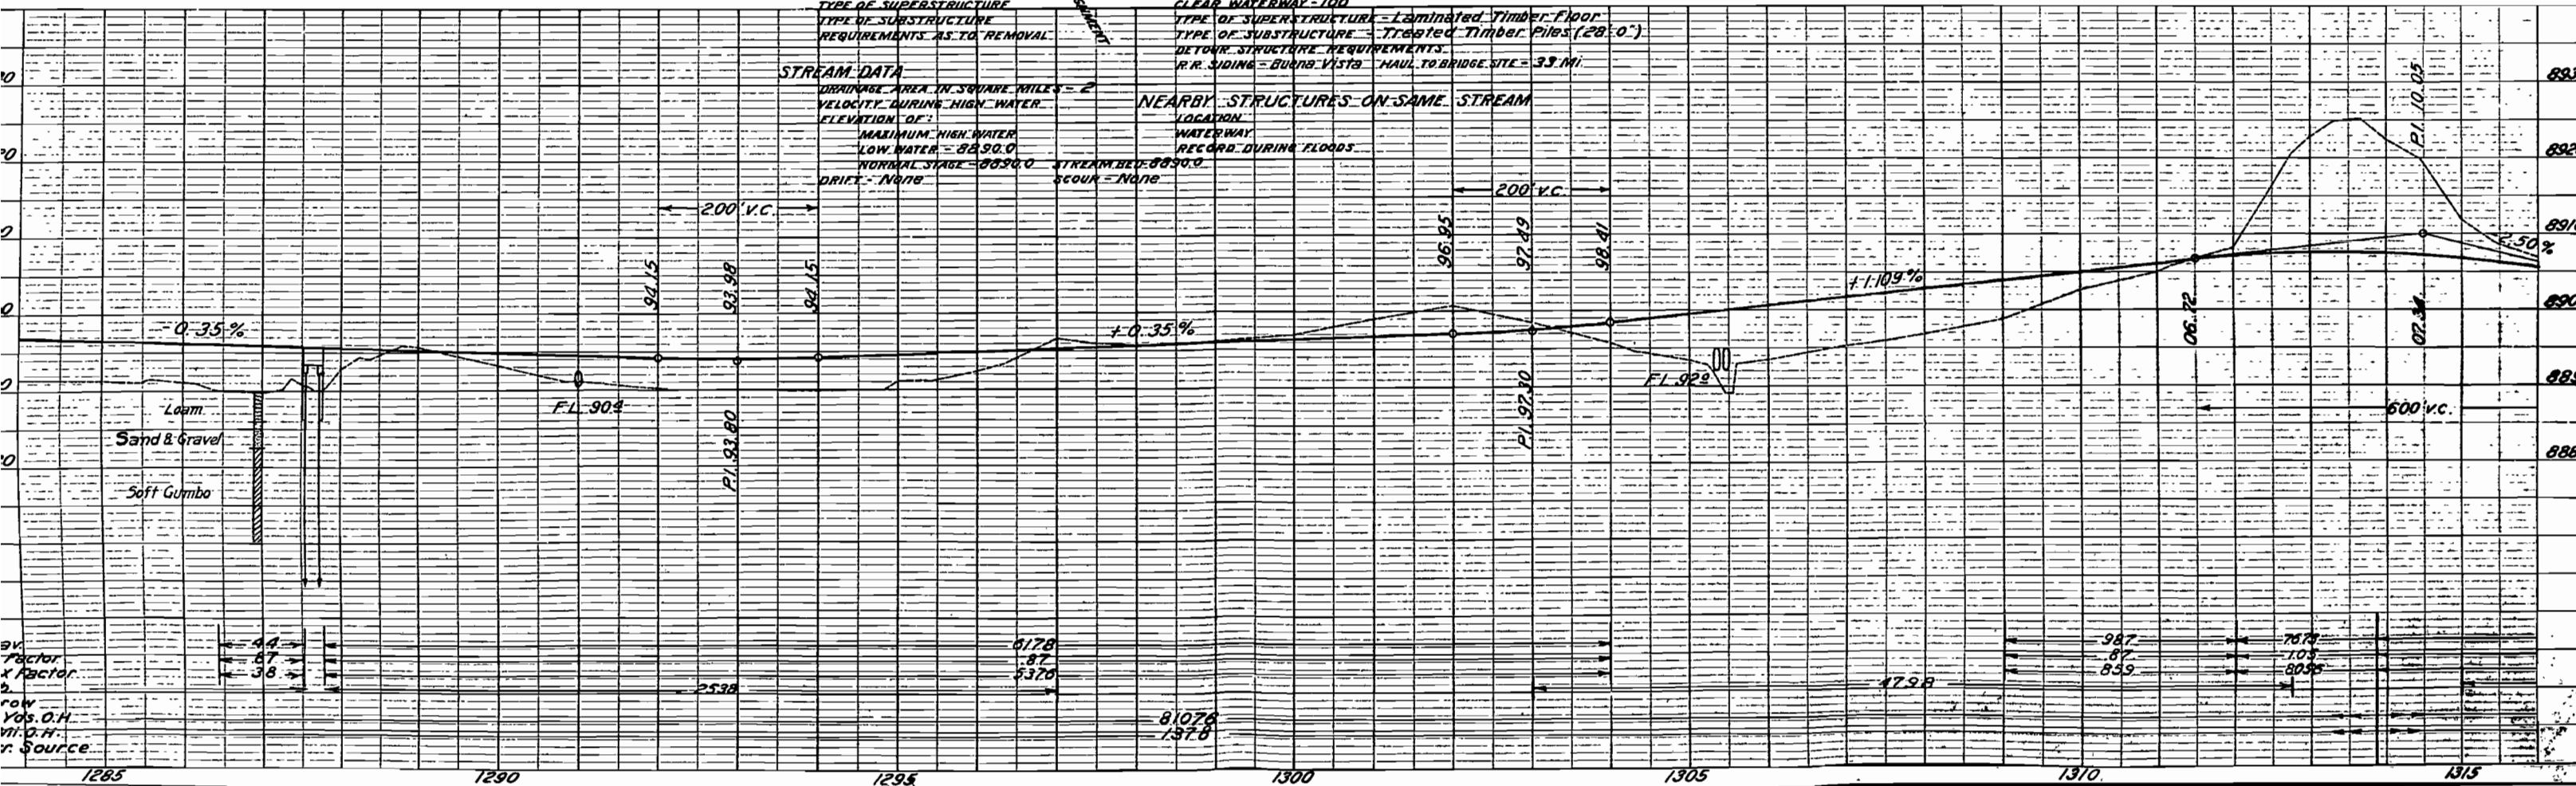 TYPE OF SUPERSTRUCTURE
TYPE OF SUBSTRUCTURE
REQUIREMENTS AS TO REMOVAL
CLEAR WATERWAY - 100
TYPE OF SUPERSTRUCTURE - Laminated Timber Floor
TYPE OF SUBSTRUCTURE - Treated Timber Piles (28'0")
DETOUR STRUCTURE REQUIREMENTS
R.R. SIDING - Buena Vista HAUL TO BRIDGE SITE - 33 Mi.
STREAM DATA
DRAINAGE AREA IN SQUARE MILES - 2
VELOCITY DURING HIGH WATER
ELEVATION OF:
MAXIMUM HIGH WATER
LOW WATER - 8890.0
NORMAL STAGE - 8890.0 STREAM BED - 8890.0
DRIFT - None SCOUR - None
NEARBY STRUCTURES ON SAME STREAM
LOCATION
WATERWAY
RECORD DURING FLOODS
200' V.C.
94.15
93.98
94.15
P.I. 93.80
200' V.C.
96.95
97.49
98.41
P.I. 97.30
P.I. 10.05
-2.50%
+1.109%
06.72
07.34
600' V.C.
-0.35%
+0.35%
F.L. 90.4
F.L. 92.9
Loam
Sand & Gravel
Soft Gumbo
893
892
891
890
889
888
Factor
x Factor
Yds. O.H.
Mi. O.H.
Source
44
87
38
6178
.87
5376
2538
4798
81076
1378
987
87
859
7673
1.05
8056
1285 1290 1295 1300 1305 1310 1315